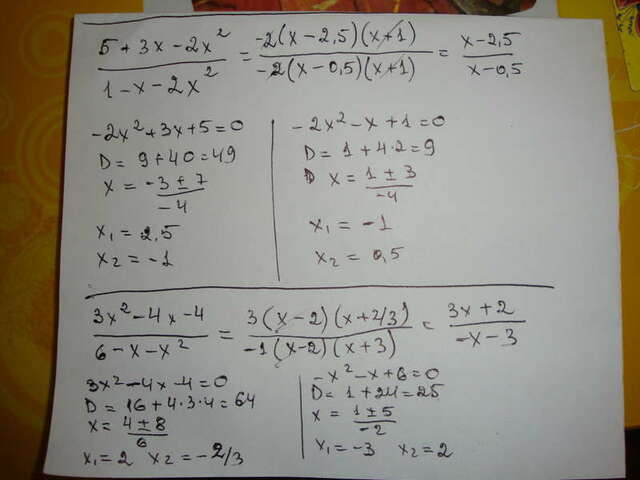 (5 + 3x - 2x²)/(1 - x - 2x²) = (-2(x - 2,5)(x + 1))/(-2(x - 0,5)(x + 1)) = (x - 2,5)/(x - 0,5)
-2x² + 3x + 5 = 0
D = 9 + 40 = 49
x = (-3 ± 7)/(-4)
x₁ = 2,5
x₂ = -1
-2x² - x + 1 = 0
D = 1 + 4·2 = 9
D x = (1 ± 3)/(-4)
x₁ = -1
x₂ = 0,5
(3x² - 4x - 4)/(6 - x - x²) = (3(x - 2)(x + 2/3))/(-1(x - 2)(x + 3)) = (3x + 2)/(-x - 3)
3x² - 4x - 4 = 0
D = 16 + 4·3·4 = 64
x = (4 ± 8)/6
x₁ = 2 x₂ = -2/3
-x² - x + 6 = 0
D = 1 + 24 = 25
x = (1 ± 5)/(-2)
x₁ = -3 x₂ = 2